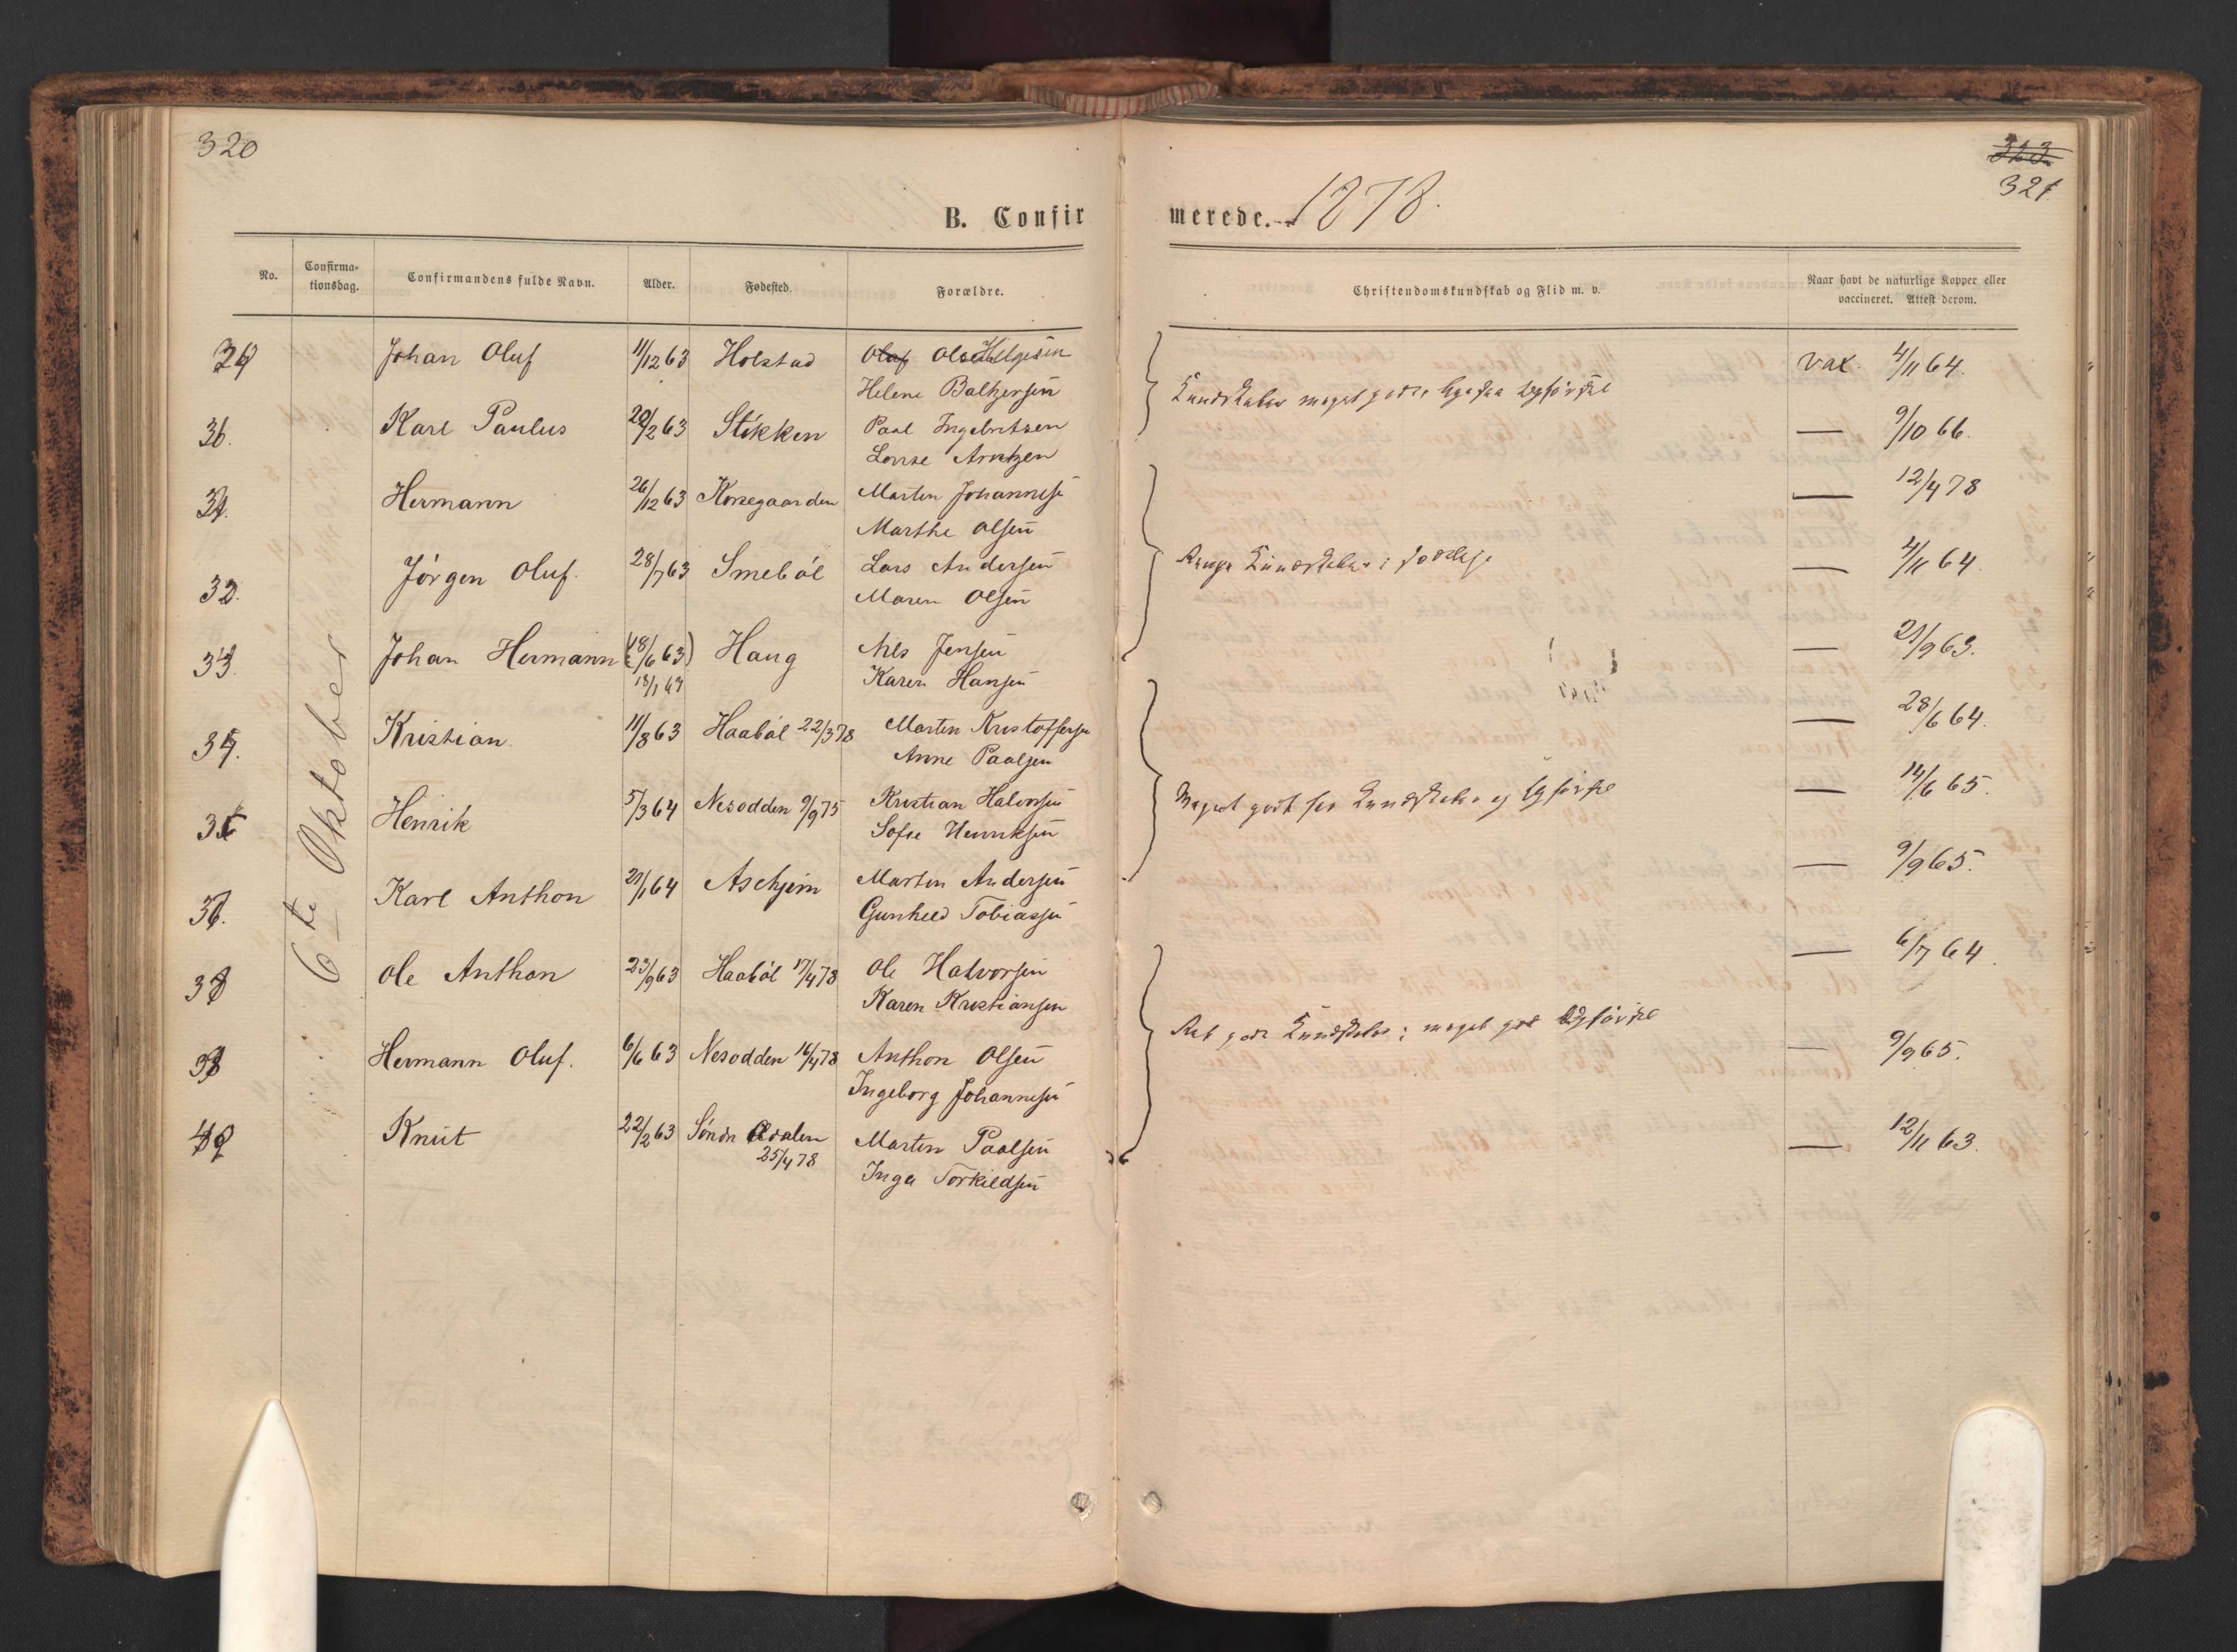 320
B. Confir
No. Confirma-tionsdag. Confirmandens fulde Navn. Alder. Fødested. Forældre.
6te Oktober
Johan Oluf 11/12 63 Holstad Helgesen
Helene Baltzersen
Karl Paulus 20/2 63 Stikken Paal Ingebretsen
Lovise Arntzen
Hermann 26/12 63 Korsegaarden Martin Johannesen
Marthe Olsen
32. Jörgen Oluf. 28/7 63 Smeböl Lars Andersen
Maren Olsen
33. Johan Hermann (18/6 63) Haug Nils Jensen
13/1 64 Karen Hansen
34. Kristian 11/8 63 Haaböl 22/3 78 Martin Kristoffersen
Anne Paalsen
35 Henrik 5/3 64 Nesodden 9/9 75 Kristian Halvorsen
Sofie Henriksen
Karl Anthon 21/1 64 Aschjem Martin Andersen
Gunhild Tobiassen
Ole Anthon 23/9 63 Haaböl 17/4 78 Ole Halvorsen
Karen Kristiansen
Hermann Oluf. 6/6 63 Nesodden 16/4 78 Anthon Olsen
Ingeborg Johannesen
Knut 22/2 63 Söndr Aadalen Martin Paalsen
25/4 78 Inga Torkildsen
323
321
merede. 1878.
Christendomskundskab og Flid m. v. Naar havt de naturlige Kopper eller vaccineret. Attest derom.
vax. 4/11 64.
Kundskaber meget gode
— 9/10 66.
— 12/4 78
Kundskaber
— 4/11 64.
— 21/9 63.
— 28/6 64.
— 14/6 65.
Meget godt for Kundskaber og
— 9/9 65.
— 6/7 64.
gode Kundskaber; meget god
— 9/9 65.
— 12/11 63.